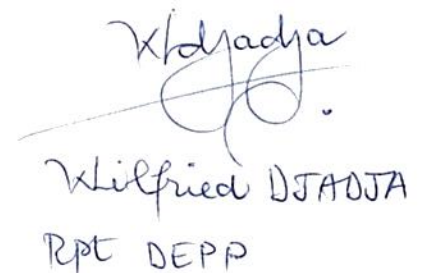 Wdjadja
Wilfried DJADJA
Rpt DEPP